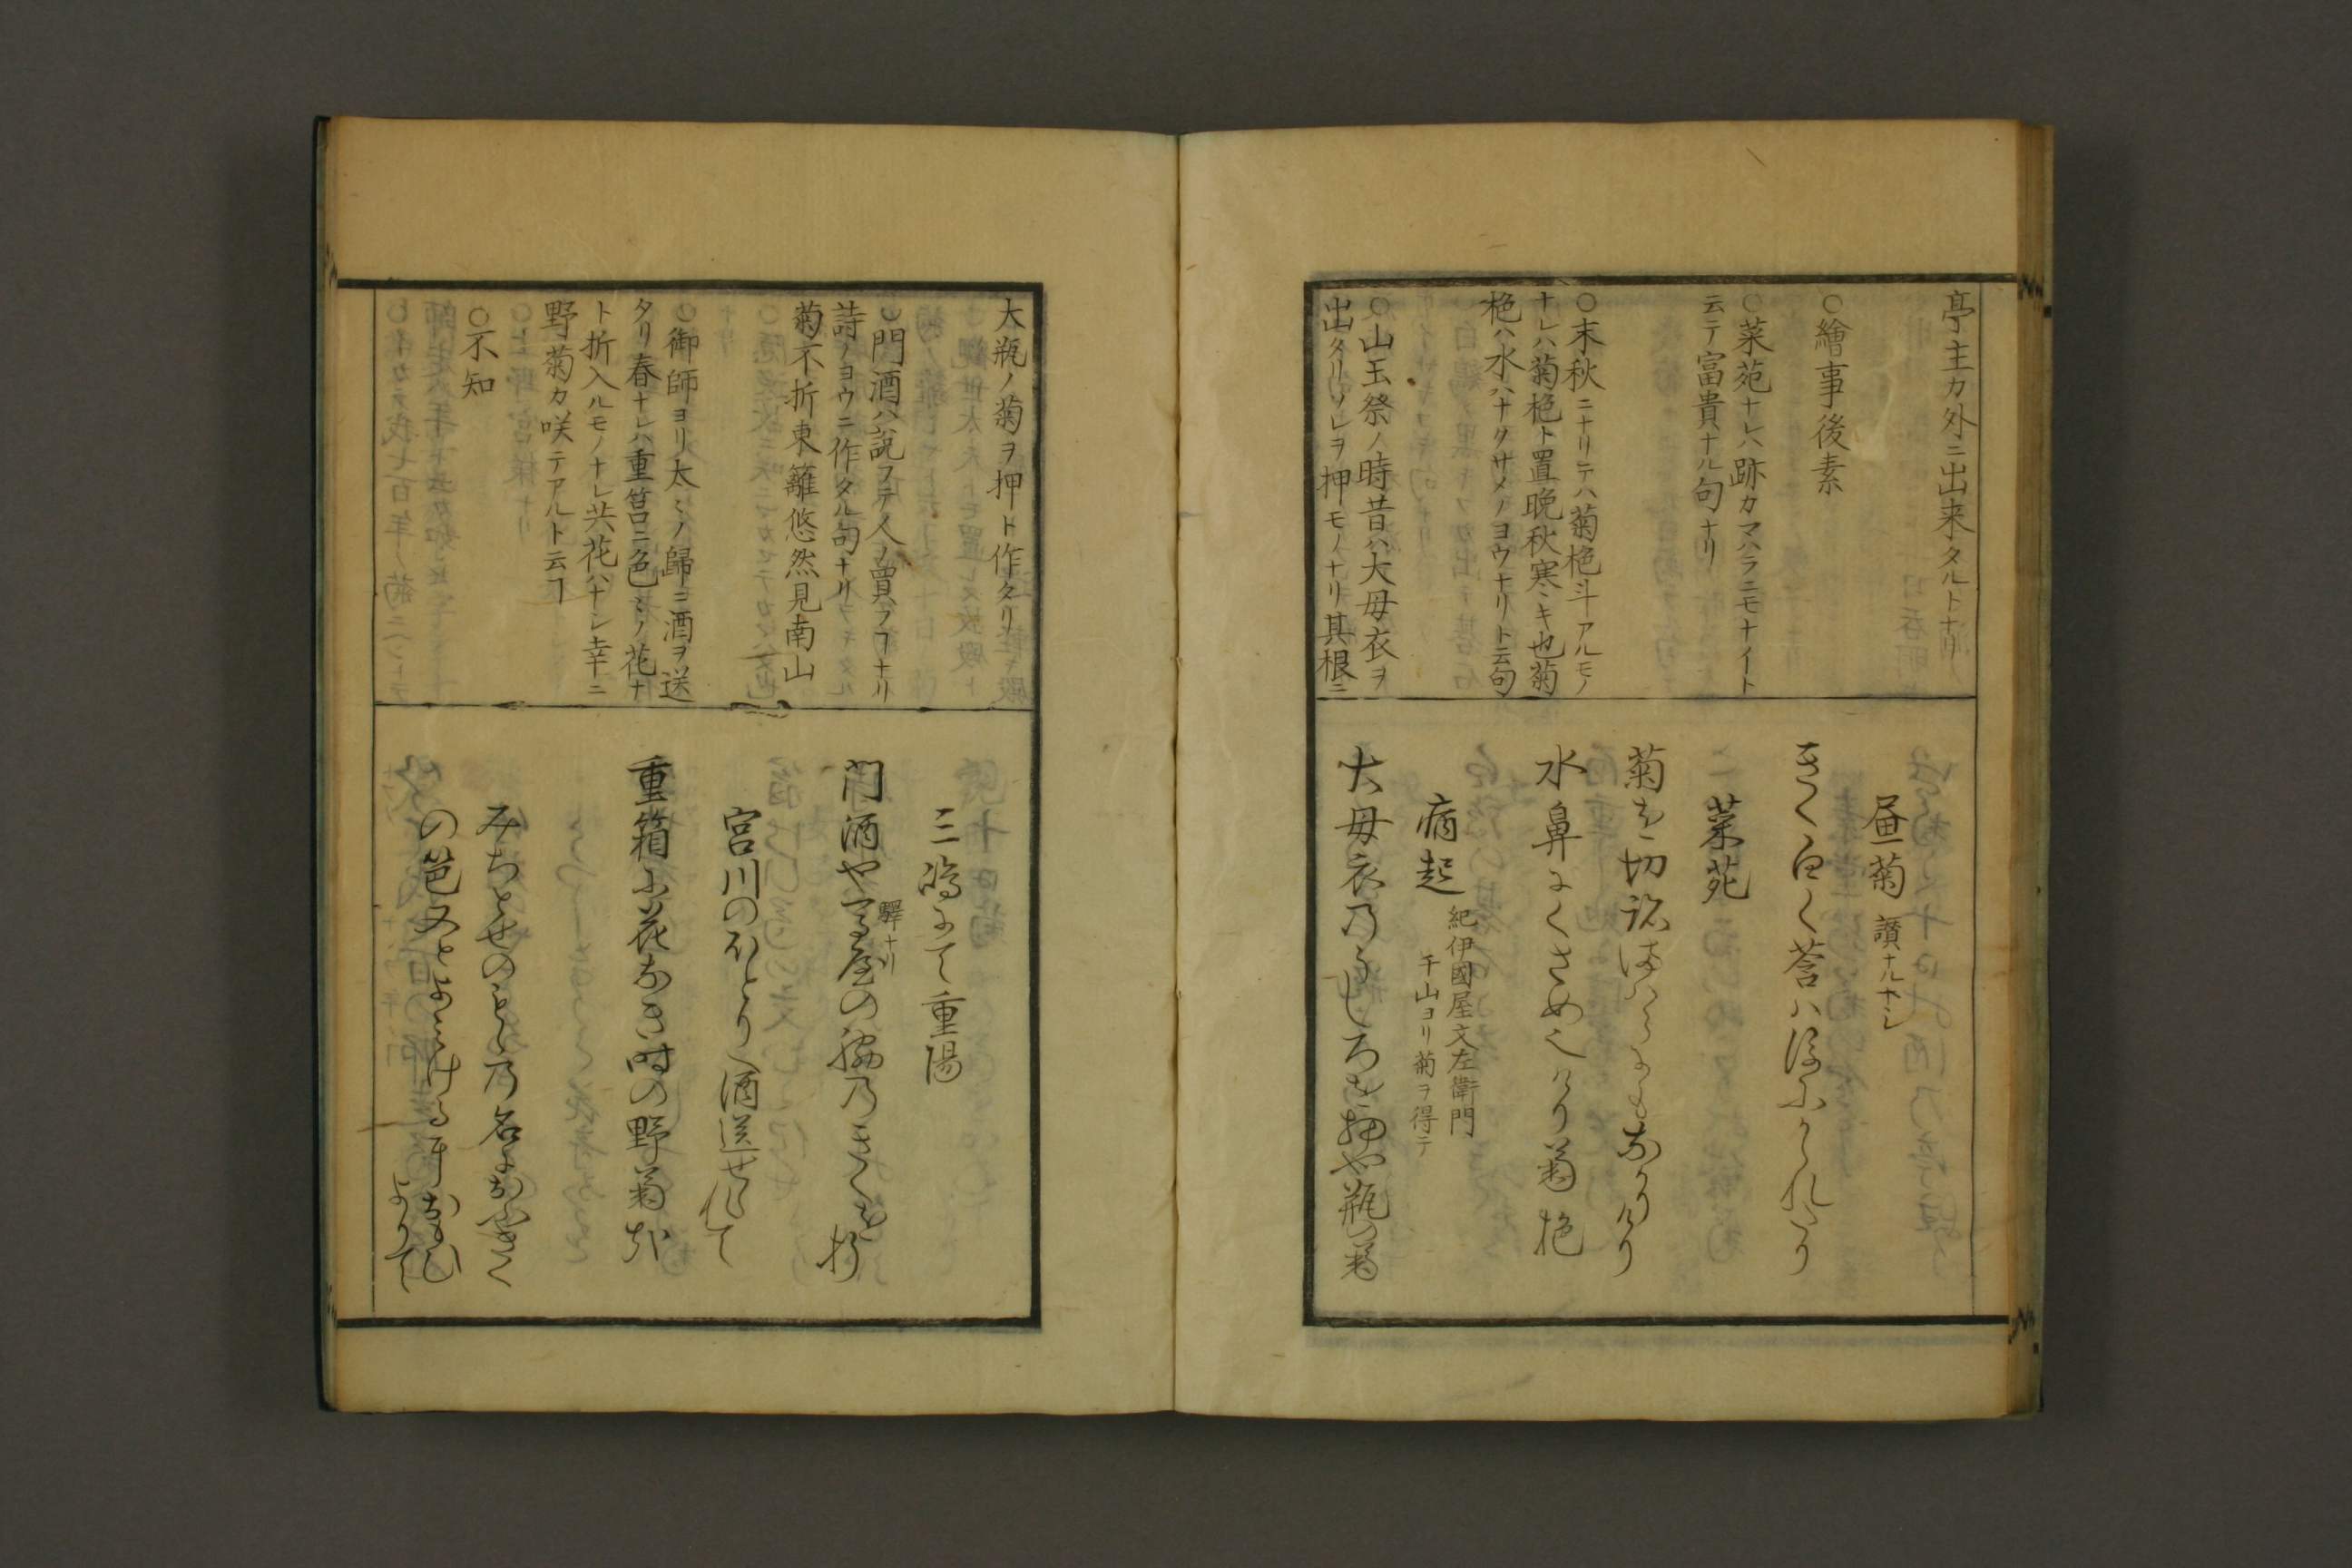 亭主カ外ニ出来タルトナリ
○繪事後素
○菜苑ナレハ跡カマハラニモナイト
云テ富貴ナル句ナリ
○末秋ニナリテハ菊桅斗アルモノ
ナレハ菊桅ト置晩秋寒キ也菊
桅ハ水ハナクサメノヨウナリト云句
○山王祭ノ時昔ハ大母衣ヲ
出タリソレヲ押モノナリ其根ニ
昼菊 讃ナルヘシ
菜苑
菊を切跡まはらにもなかりけり
水鼻にくさめなりけり菊桅
病起 紀伊國屋文左衛門
千山ヨリ菊ヲ得テ
大母衣のうしろを押や瓶の菊
大瓶ノ菊ヲ押ト作タリ
○門酒ハ説フテ人ノ買フヿナリ
詩ノヨウニ作タル句ナリ
菊不折東籬悠然見南山
○御師ヨリ太〻ノ歸ニ酒ヲ送
タリ春ナレハ重筥ニ色〻ノ花ナ
ト折入ルモノナレ共花ハナシ幸ニ
野菊カ咲テアルト云ヿ
○不知
三嶋にて重陽
門酒や馬屋の脇のきくを折
驛ナリ
宮川のほとりへ酒送せられて
重箱に花なき時の野菊哉